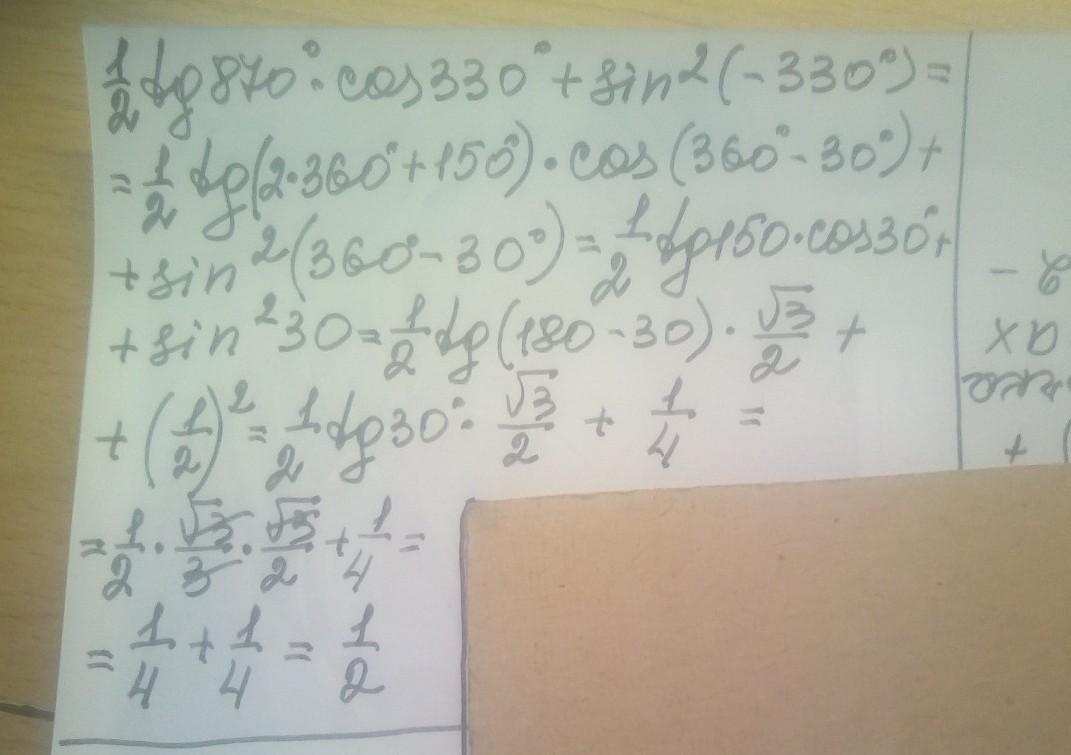 1/2 tg 870° · cos 330° + sin²(-330°) =
= 1/2 tg(2·360° + 150°) · cos(360° - 30°) +
+ sin²(360° - 30°) = 1/2 tg 150 · cos 30° +
+ sin²30 = 1/2 tg(180 - 30) · √3/2 +
+ (1/2)² = 1/2 tg 30° · √3/2 + 1/4 =
= 1/2 · √3/3 · √3/2 + 1/4 =
= 1/4 + 1/4 = 1/2